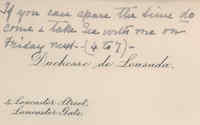 If you can spare the time do
come & take tea with me on
Friday next - (4 to 7) -
Duchesse de Lousada.
4, Lancaster Street,
Lancaster Gate.